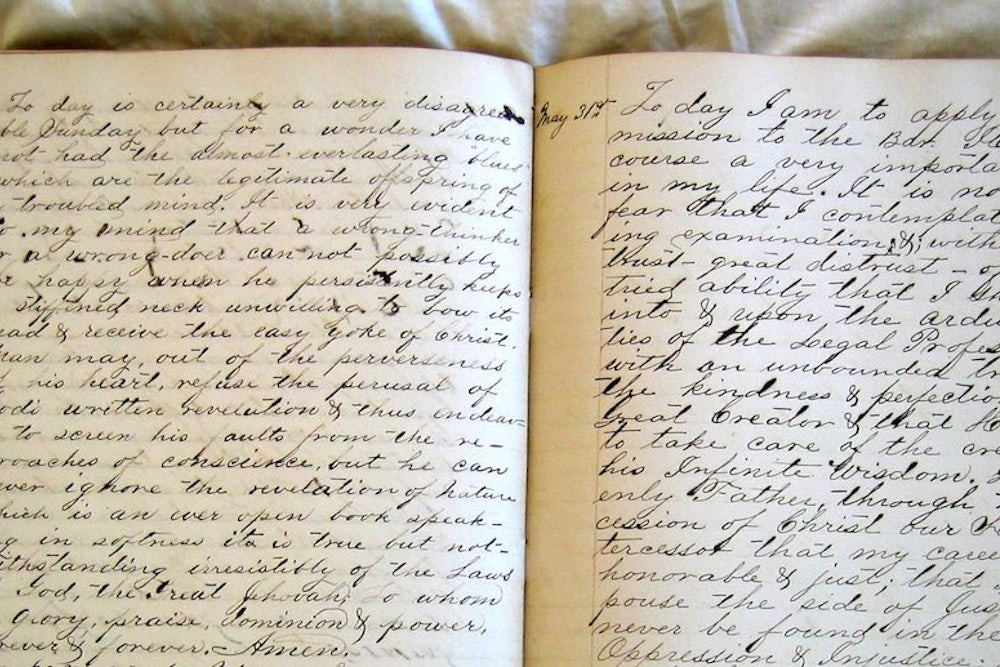 To day is certainly a very disagree
ble Sunday but for a wonder I have
not had the almost everlasting blues
which are the legitimate offspring of
troubled mind. It is very evident
to my mind that a wrong-thinker
r a wrong-doer can not possibly
e happy when he persistently keeps
stiffened neck unwilling to bow its
ead & receive the easy yoke of Christ.
man may, out of the perverseness
f his heart, refuse the perusal of
Gods written revelation & thus endeav-
to screen his faults from the re-
roaches of conscience, but he can
ever ignore the revelation of Nature
hich is an ever open book speak-
g in softness it is true but not-
ithstanding irresistibly of the Laws
God, the Great Jehovah, to whom
glory, praise, dominion & power,
rever & forever. - Amen.
May 31st
To day I am to apply
mission to the Bar.
course a very importa
in my life. It is no
fear that I contemplat
ing examination, &, with
trust - great distrust -
tried ability that I
into & upon the ardu
ties of the Legal Profes
with an unbounded tr
the kindness & perfectio
Great Creator & that
to take care of the cre
his Infinite Wisdom.
enly Father, through
cession of Christ our
tercessor that my caree
honorable & just; that
pouse the side of Jus
never be found in the
Oppression & Injustice.